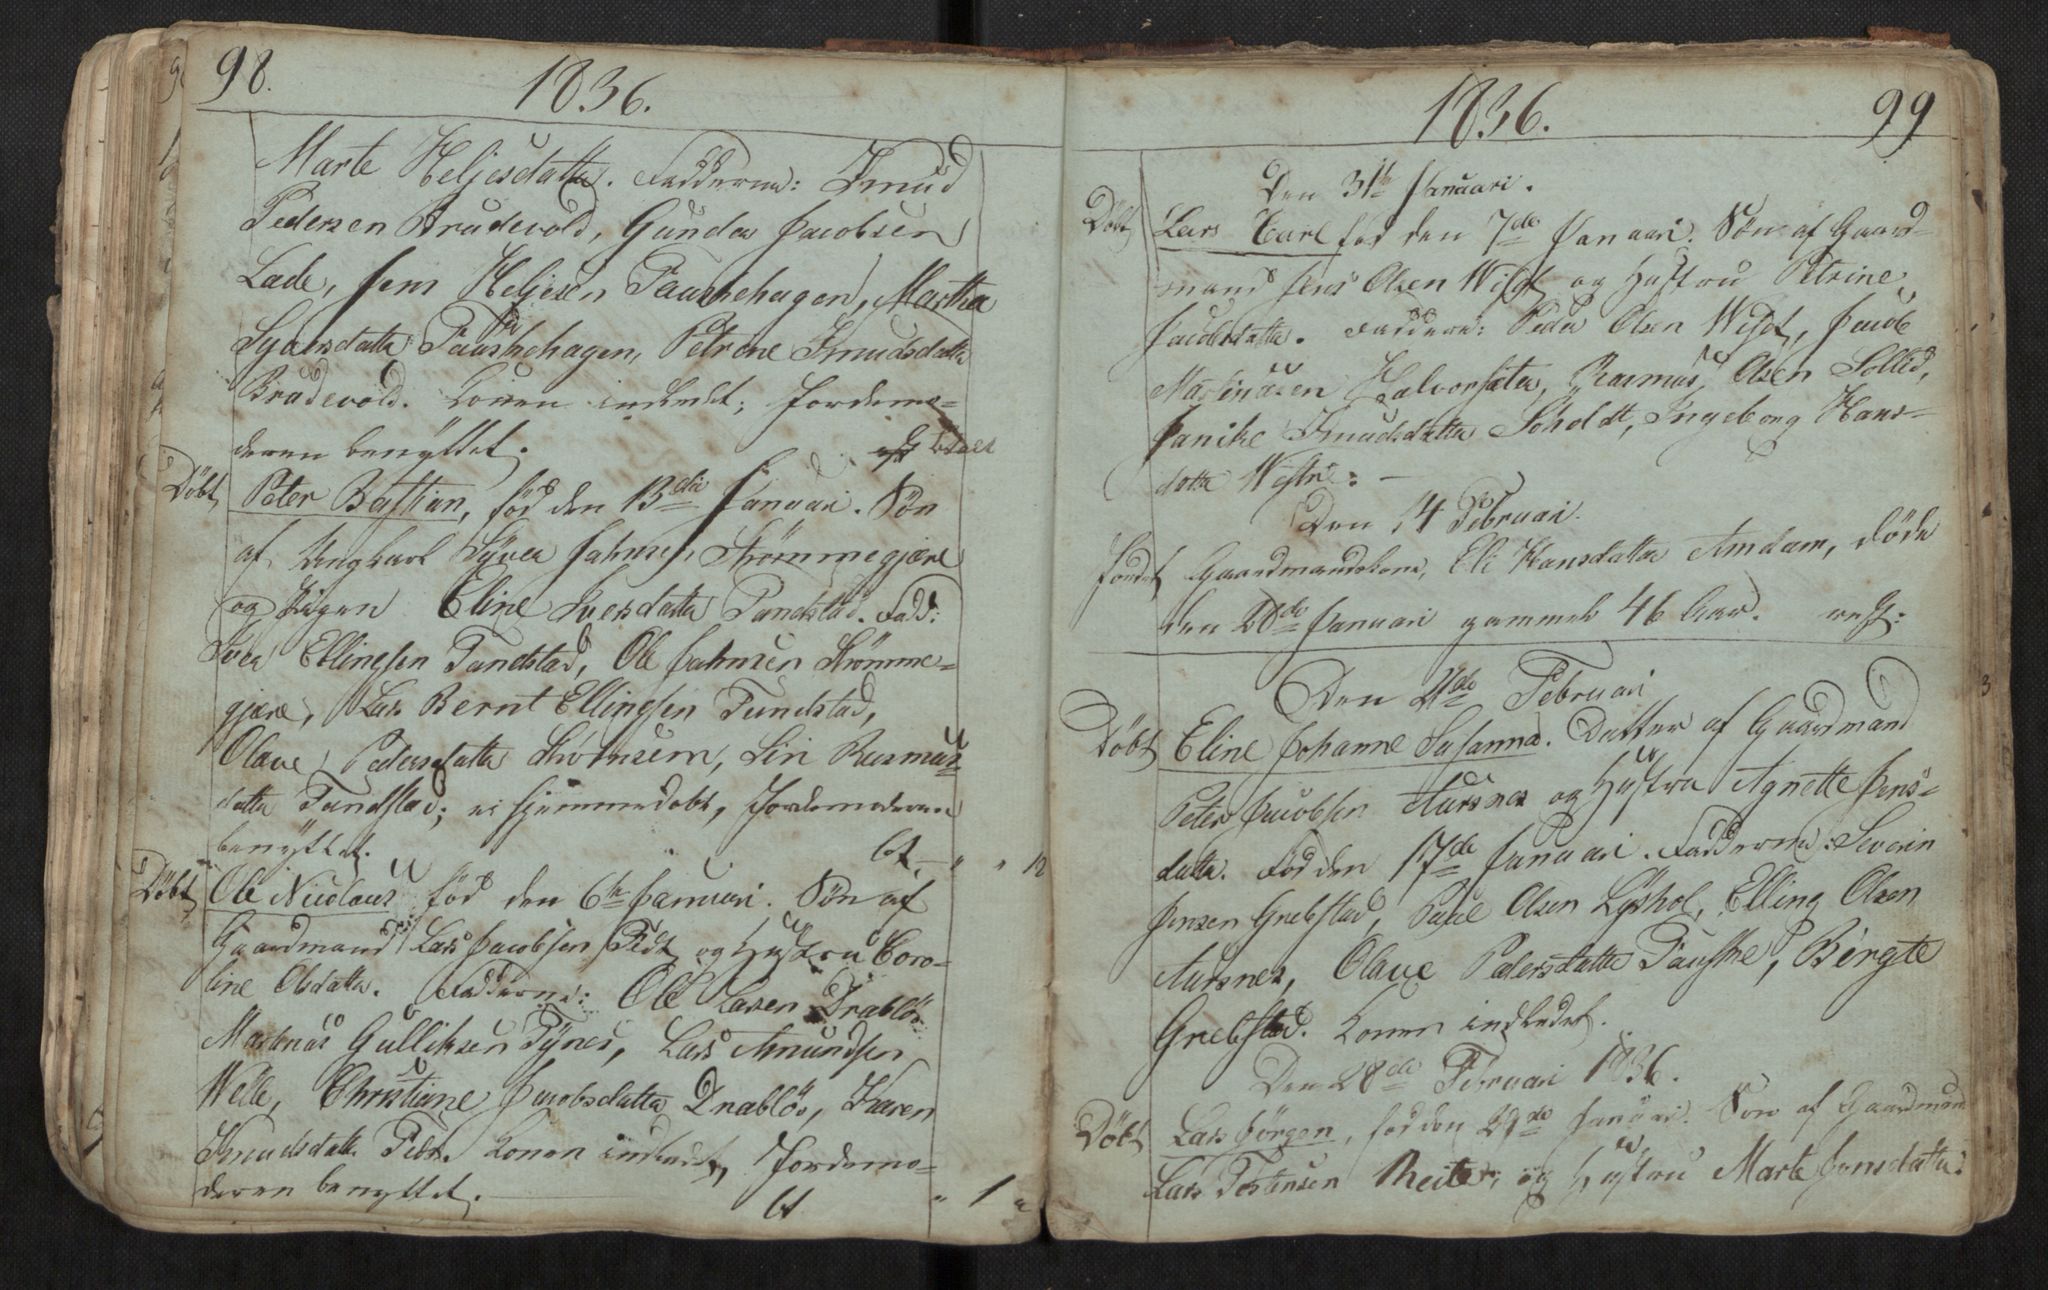 98.
1836.
Marte Heljesdatter. Fadderne: Knud
Pedersen Brudevold, Gunder Jacobsen
Lade, Jens Heljesen Fauskehagen, Martha
Syversdatter Fauskehagen, Petrone Knudsdatter
Brudevold. Konen indledet; Jordemo-
deren benyttet. betalt
Döbt Peter Bastian, föd den 13de Januari. Sön
af Ungkarl Syver Johnsen Strömmegjære
og Pigen Eline Iversdatter Tandstad. Fadd:
Iver Ellingsen Tandstad, Ole Johnsen Strömme-
gjære, Lars Bernt Ellingsen Tundstad,
Olave Pedersdatter, Siri Rasmus-
datter Tundstad; ei hjemmedöbt, Jordemoderen
benyttet. bt. " " 12
Döbt Ole Nicolaus föd den 6te Januari. Sön af
Gaardmand Lars Jacobsen Fedt og Hustru Coro-
line Olsdatter. Fadderne: Ole Larsen Drablös
Martinus Gulliksen Tynes, Lars Amundsen
Welle, Christiane Jacobsdatter Drablös, Karen
Knudsdatter Fedt. Konen indledet, Jordemo-
deren benyttet. bt " 1 "
1836.
99
Den 31te Januari.
Döbt Lars Carl föd den 7de Januari. Sön af Gaard-
mand Jens Olsen og Hustru Petrine
Jacobsdatter. Faddere: Peder Olsen, Jacob
Martinusen Halvorsæter, Rasmus Olsen Sollid,
Janike Knudsdatter Söholdt, Ingeborg Hans-
datter Westre: —
Den 14 Februari.
Jordet Gaardmandskone, Eli Hansdatter Amdam, döde
den 28de Januari gammel 46 Aar. rest:
Den 21de Februari
Döbt Eline Johanne Susanna. Datter af Gaardmand
Peter Jacobsen Aursnes og Hustru Agnette Jens-
datter. Föd den 17de Januari. Fadderne: Severin
Jensen Grebstad, Paul Olsen Lyshol, Elling Olsen
Aursnes, Olave Pedersdatter Fauske, Birgte
Grebstad. Konen indledet.
Den 28de Februari 1836.
Döbt Lars Jörgen, föd den 29de Januari. Sön af Gaardmand
Lars Tostensen Reite, og Hustru Marte Jonsdatter: